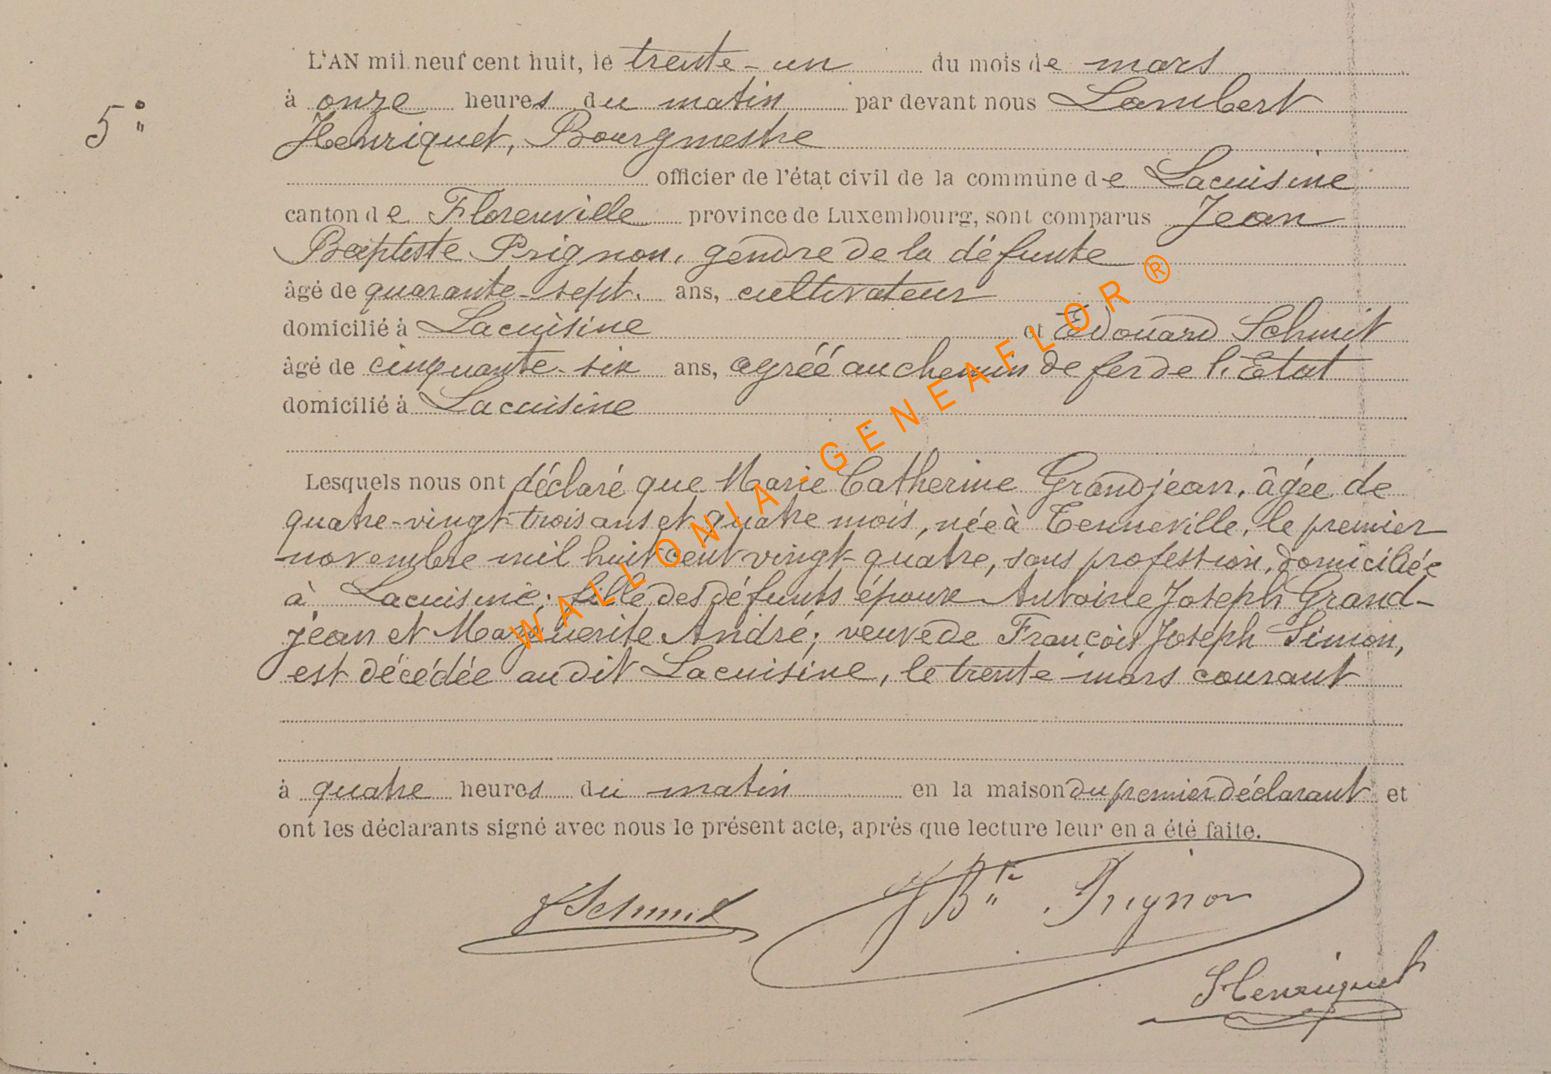 5°
L'AN mil neuf cent huit, le trente-un du mois de mars
à onze heures du matin par devant nous Lambert
Henriquet, Bourgmestre
officier de l'état civil de la commune de Lacuisine
canton de Florenville province de Luxembourg, sont comparus Jean
Baptiste Prignon, gendre de la défunte
âgé de quarante-sept. ans, cultivateur
domicilié à Lacuisine et Edouard Schmit
âgé de cinquante-six ans, agréé au chemin de fer de l'Etat
domicilié à Lacuisine
Lesquels nous ont déclaré que Marie Catherine Grandjean, âgée de
quatre-vingt-trois ans et quatre mois, née à Tenneville, le premier
novembre mil huit cent vingt-quatre, sans profession, domiciliée
à Lacuisine; fille des défunts époux Antoine Joseph Grand-
jean et Marguerite André; veuve de François Joseph Simon,
est décédée audit Lacuisine, le trente mars courant
à quatre heures du matin en la maison du premier déclarant et
ont les déclarants signé avec nous le présent acte, après que lecture leur en a été faite.
Schmit
J Bte Prignon
Henriquet
WALLONIA-GENEAFLOR®